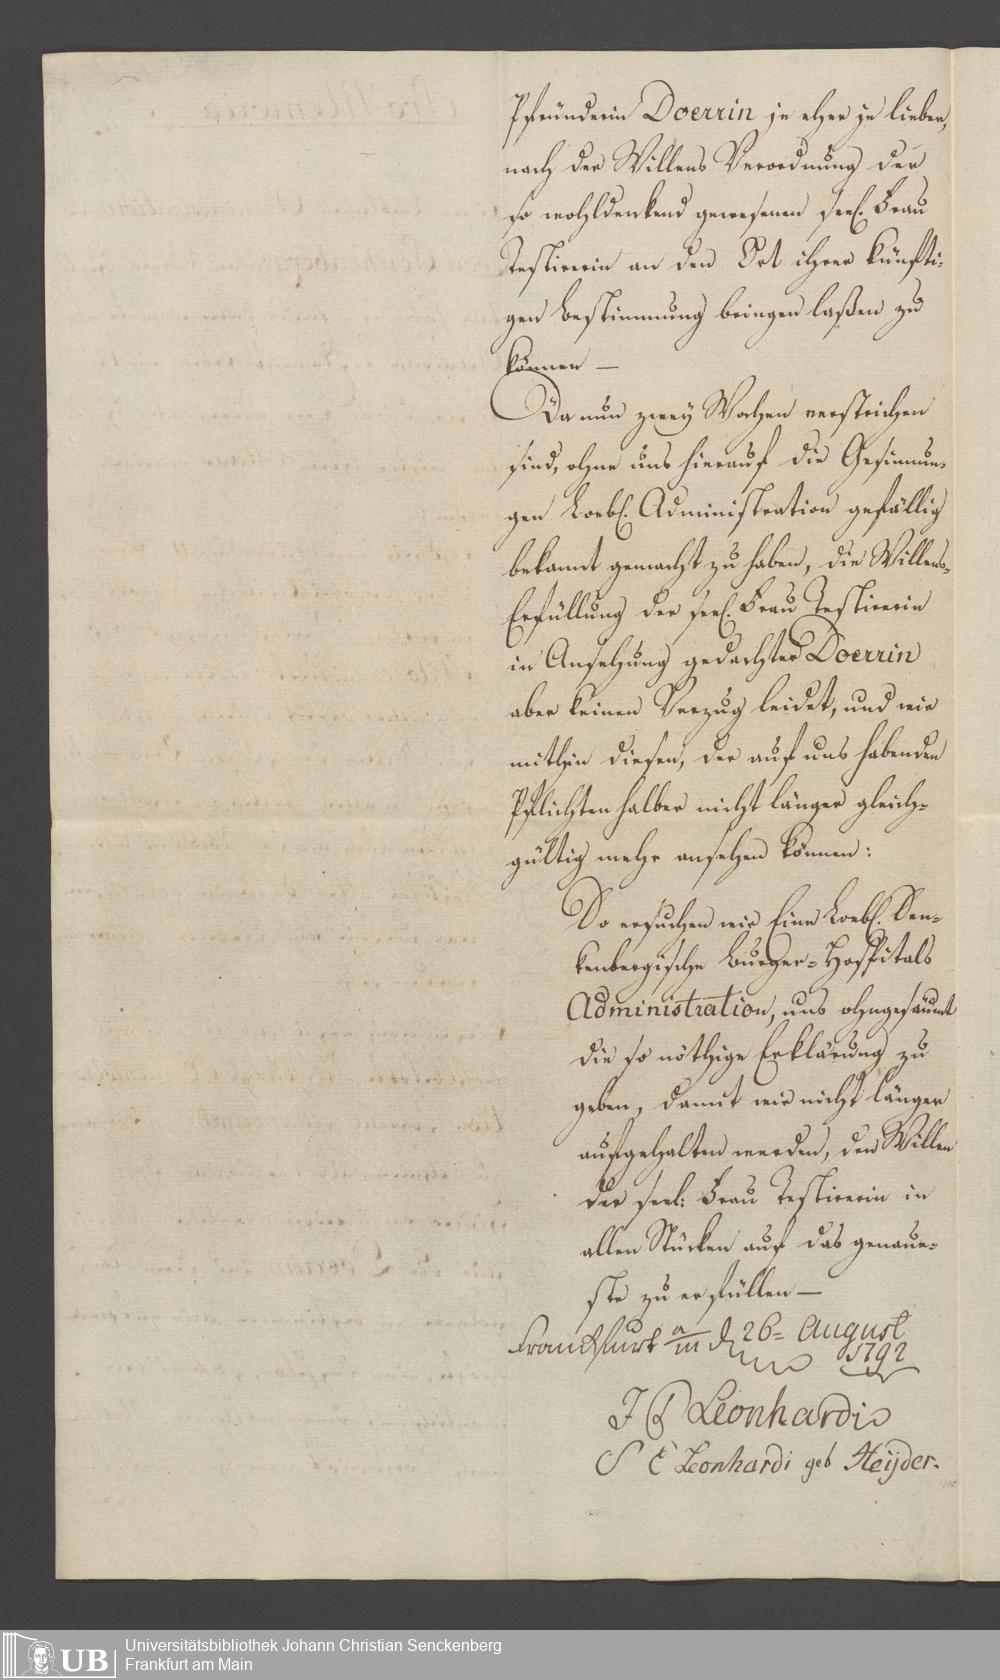 Pfründerin Doerrin je eher je lieber,
nach der Willens Verordnung der
so wohldenkend gewesenen seel. Frau
Testirerin an den Ort ihrer künfti-
gen Bestimmung bringen laßen zu
können —
Da nun zwey Wochen verstrichen
sind, ohne uns hierauf die Gesinnun-
gen Loebl. Administration gefällig
bekannt gemacht zu haben, die Willens-
Erfüllung der seel. Frau Testirerin
in Ansehung gedachter Doerrin
aber keinen Verzug leidet, und wir
mithin diesen, der auf uns habenden
Pflichten halber nicht länger gleich-
gültig mehr ansehen können:
So ersuchen wir Eine Loebl. Sen-
kenbergische Burger-Hospitals
Administration, uns ohngesäumt
die so nöthige Erklärung zu
geben, damit wir nicht länger
aufgehalten werden, den Willen
der seel: Frau Testirerin in
allen Stücken auf das genaue-
ste zu erfüllen —
Franckfurt a/m d 26= August
1792
J P Leonhardi
S E Leonhardi geb Heijder.
UB
Universitätsbibliothek Johann Christian Senckenberg
Frankfurt am Main